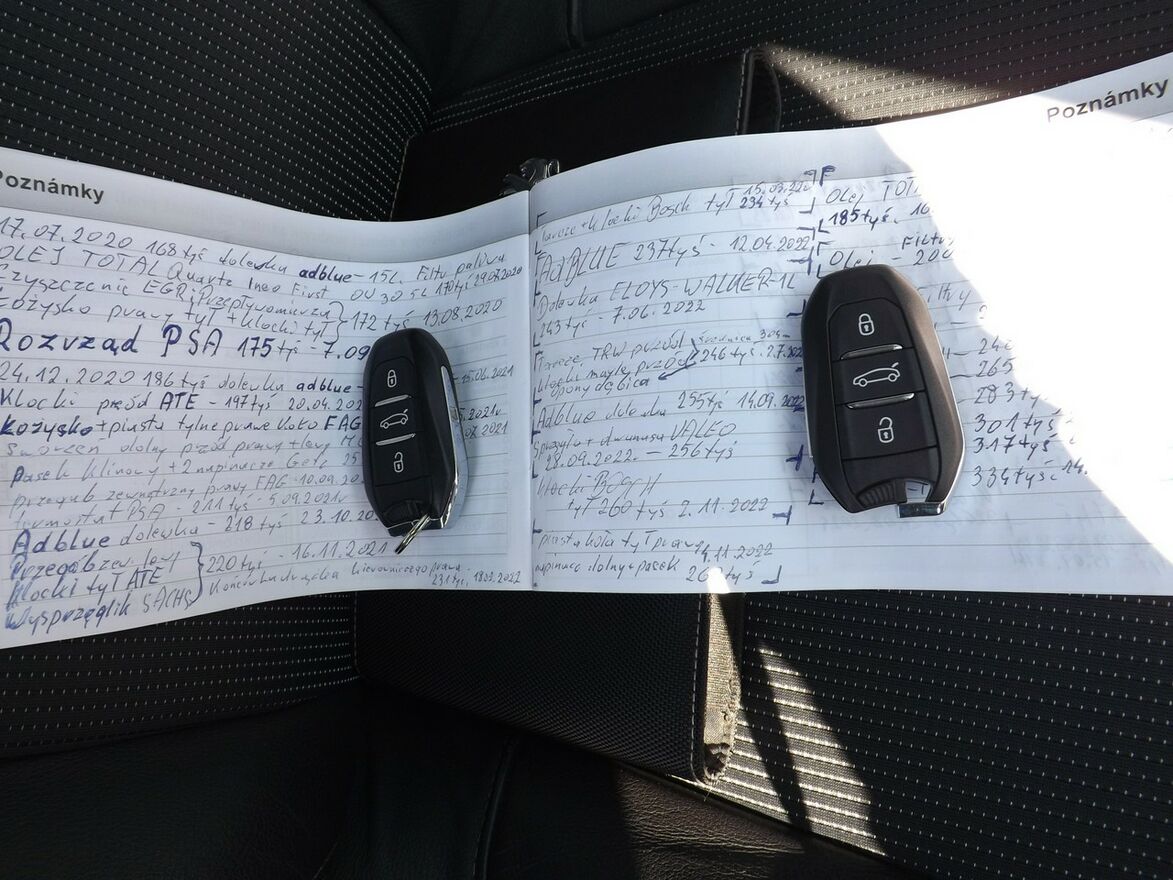 Poznámky
17.07.2020 168 tyś dolewka adblue - 15L. Filtr paliwa
OLEJ TOTAL Quartz Ineo First 0W30 5L 170 tyś 29.07.2020
Czyszczenie EGR i Przepływomierza
Łożysko prawy tył + klocki tył } 172 tyś 13.08.2020
Rozvząd PSA 175 tyś - 7.09
24.12.2020 186 tyś dolewka adblue - 15.06.2021
Klocki przód ATE - 197 tyś 20.04.202
Łożysko + piasta tylne prawe koło FAG
sworzeń dolny przód prawy + lewy
Pasek klinowy + 2 napinacze Gate 25
przegub zewnętrzny prawy FAG - 10.09.20
termostat PSA - 211 tyś - 5.09.2021r
Adblue dolewka - 218 tyś 23.10.20
Przegub zew. lewy
klocki tył ATE } 220 tyś - 16.11.2021
Wysprzęglik SACHS
Końcówka drążka kierowniczego prawa - 231 tyś. 18.02.2022
Poznámky
Tarcze + klocki Bosch tył 15.03.2022 234 tyś
AdBLUE 237 tyś - 12.04.2022
Dolewka ELOYS - WALKER - 1L
243 tyś - 7.06.2022
Tarcze TRW przód średnica 304
klocki mayle przód 246 tyś 2.7.202
opony dębica
Adblue dolewka 255 tyś 14.09.202
Sprzęgło + dwumasa VALEO
28.09.2022r - 256 tyś
klocki BOSCH
tył 260 tyś 2.11.2022
piasta koła tył prawa 14.11.2022
napinacz dolny + pasek
Olej TOTA
185 tyś. 16
Olej - Filtry
200
265
283 ty
301 tyś
317 tyś
334 tyś 14.